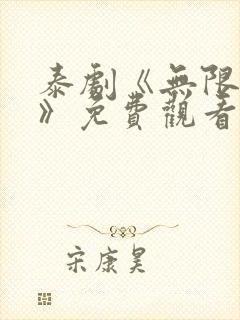 泰劇《無限
》免費觀看
宋康昊